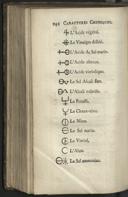 CARACTERES CHYMIQUES.
L'Acide végétal.
Le Vinaigre distilé.
L'Acide du Sel marin.
L'Acide nitreux.
L'Acide vitriolique.
Le Sel Alkali fixe.
L'Alkali volatile.
La Potasse.
La Chaux vive.
Le Nitre.
Le Sel marin.
Le Vitriol.
L'Alun.
Le Sel ammoniac.